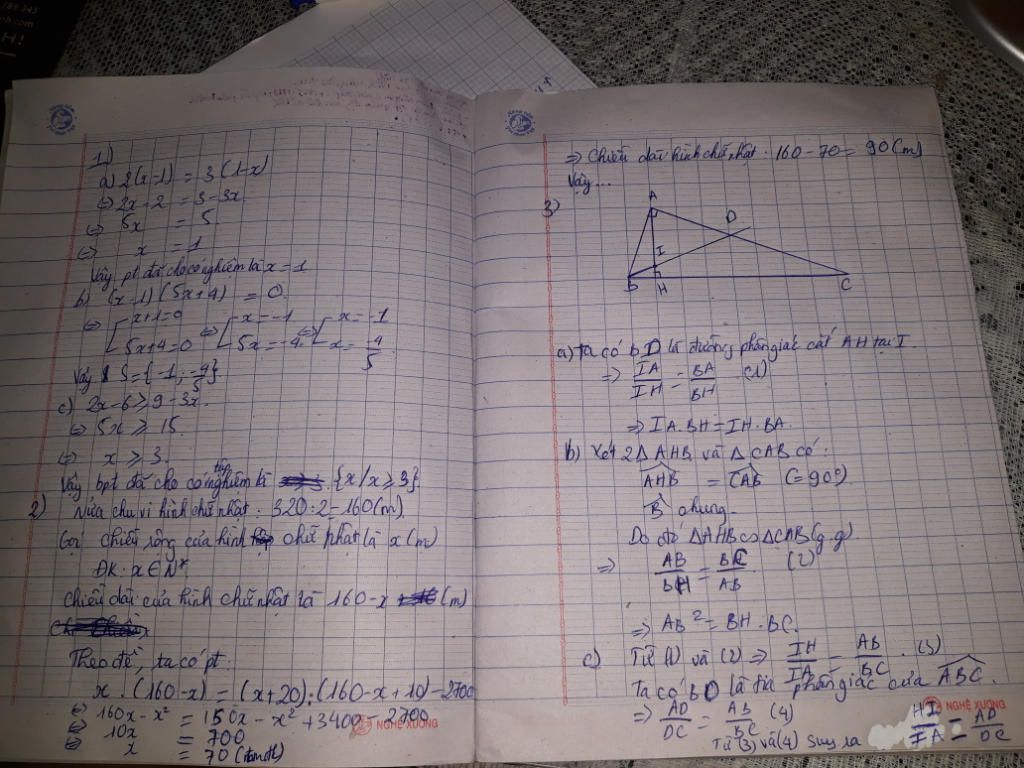 1)
a) 2(x-1) = 3(1-x)
⇔ 2x-2 = 3-3x
⇔ 5x = 5
⇔ x = 1
Vậy pt đã cho có nghiệm là x = 1
b) (x-1)(5x+4) = 0
⇔ [x+1=0 ⇔ [x=-1 ⇔ [x=-1
[5x+4=0 [5x=-4 [x=-4/5
Vậy S = {-1; -4/5}
c) 2x-6 ≥ 9-3x
⇔ 5x ≥ 15
⇔ x ≥ 3
Vậy bpt đã cho có tập nghiệm là {x/x ≥ 3}
2) Nửa chu vi hình chữ nhật: 320:2 = 160(m)
Gọi chiều rộng của hình chữ nhật là x(m)
ĐK: x ∈ N*
chiều dài của hình chữ nhật là 160-x (m)
Theo đề, ta có pt:
x.(160-x) = (x+20).(160-x+10)-2700
⇔ 160x - x² = 150x - x² + 3400 - 2700
⇔ 10x = 700
⇔ x = 70 (nhận)
⇒ Chiều dài hình chữ nhật: 160-70 = 90(m)
Vậy...
3)
A
D
I
B H C
a) Ta có BD là đường phân giác cắt AH tại I
⇒ IA/IH = BA/BH (1)
⇒ IA.BH = IH.BA
b) Xét 2Δ AHB và Δ CAB có:
AHB = CAB (=90°)
B chung
Do đó ΔAHB ∽ ΔCAB (g.g)
⇒ AB/BH = BC/AB (2)
⇒ AB² = BH.BC
c) Từ (1) và (2) ⇒ IH/IA = AB/BC (3)
Ta có BD là tia phân giác của ABC.
⇒ AD/DC = AB/BC (4)
Từ (3) và (4) suy ra HI/IA = AD/DC
NGHỆ XƯƠNG
NGHỆ XƯƠNG